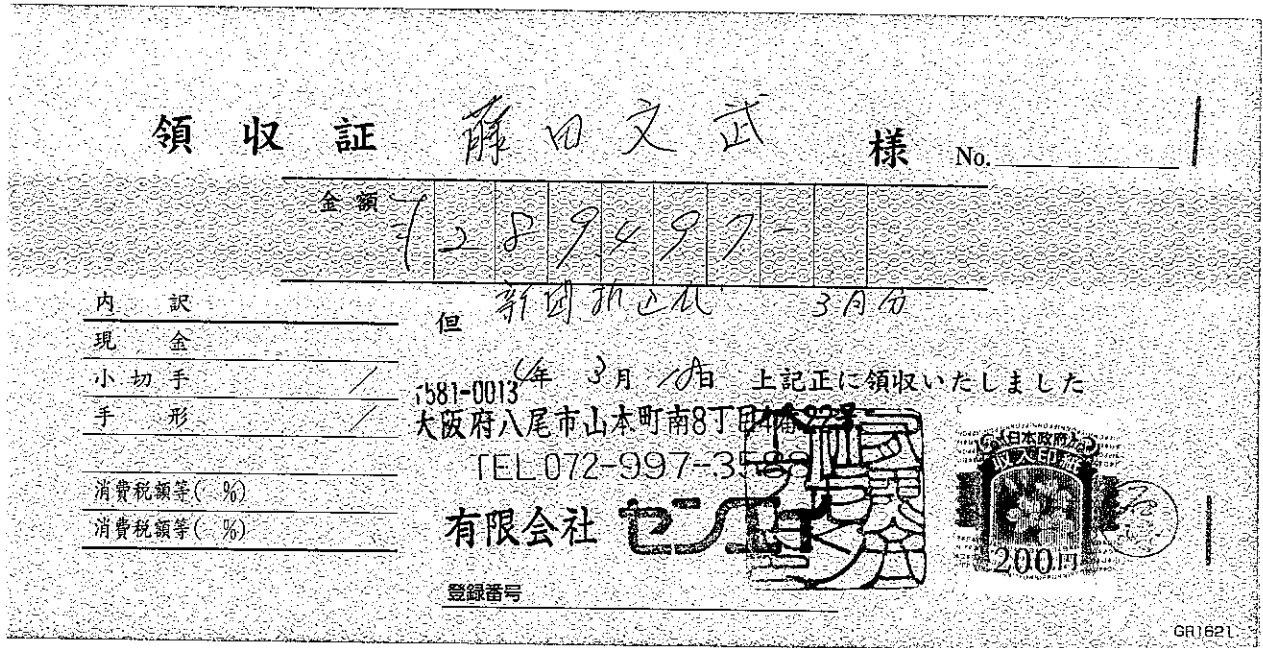 領収証 藤田文武 様 No.
金額 ¥289497-
但 新聞折込代 3月分
内訳
現金
小切手
手形
消費税額等( %)
消費税額等( %)
4年 3月 18日 上記正に領収いたしました
〒581-0013
大阪府八尾市山本町南8丁目4番22号
TEL 072-997-35
有限会社 センエイ
登録番号
日本政府
収入印紙
200円
GR1621